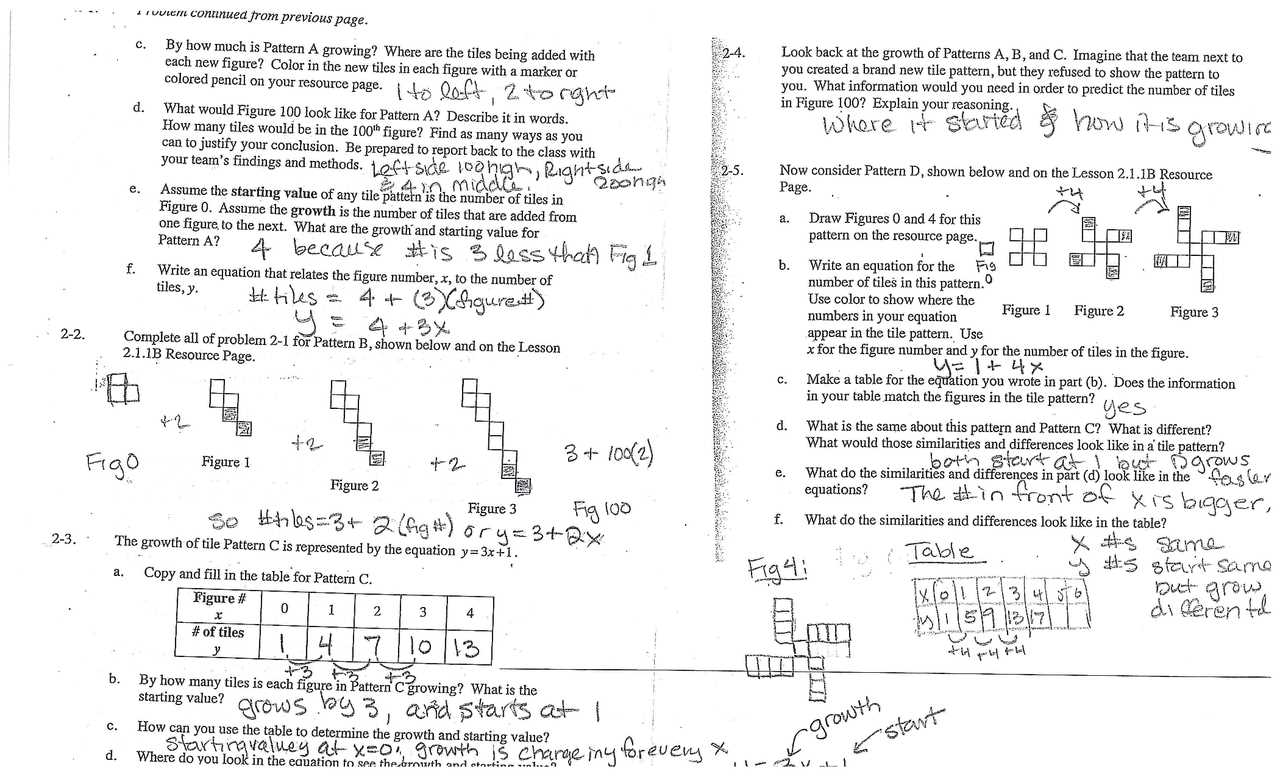 Problem continued from previous page.
c. By how much is Pattern A growing? Where are the tiles being added with
each new figure? Color in the new tiles in each figure with a marker or
colored pencil on your resource page. 1 to left, 2 to right
d. What would Figure 100 look like for Pattern A? Describe it in words.
How many tiles would be in the 100th figure? Find as many ways as you
can to justify your conclusion. Be prepared to report back to the class with
your team's findings and methods. Left side 100 high, Right side
200 high
& 4 in middle.
e. Assume the starting value of any tile pattern is the number of tiles in
Figure 0. Assume the growth is the number of tiles that are added from
one figure to the next. What are the growth and starting value for
Pattern A? 4 because # is 3 less than Fig 1
f. Write an equation that relates the figure number, x, to the number of
tiles, y. # tiles = 4 + (3)(figure#)
y = 4 + 3x
2-2. Complete all of problem 2-1 for Pattern B, shown below and on the Lesson
2.1.1B Resource Page.
+2 +2 +2 3 + 100(2)
Fig 0 Figure 1 Figure 2 Figure 3 Fig 100
So #tiles=3+ 2(fig#) or y=3+2x
2-3. The growth of tile Pattern C is represented by the equation y=3x+1.
a. Copy and fill in the table for Pattern C.
Figure # x 0 1 2 3 4
# of tiles y 1 4 7 10 13
+3 +3 +3
b. By how many tiles is each figure in Pattern C growing? What is the
starting value? grows by 3, and starts at 1
c. How can you use the table to determine the growth and starting value?
starting value y at x=0, growth is change in y for every x
d. Where do you look in the equation to see the growth and starting value?
2-4. Look back at the growth of Patterns A, B, and C. Imagine that the team next to
you created a brand new tile pattern, but they refused to show the pattern to
you. What information would you need in order to predict the number of tiles
in Figure 100? Explain your reasoning.
Where it started & how it is growing
2-5. Now consider Pattern D, shown below and on the Lesson 2.1.1B Resource
Page.
+4 +4
a. Draw Figures 0 and 4 for this
pattern on the resource page.
b. Write an equation for the
number of tiles in this pattern.
Use color to show where the
numbers in your equation
appear in the tile pattern. Use
x for the figure number and y for the number of tiles in the figure.
Fig 0 Figure 1 Figure 2 Figure 3
y = 1 + 4x
c. Make a table for the equation you wrote in part (b). Does the information
in your table match the figures in the tile pattern? yes
d. What is the same about this pattern and Pattern C? What is different?
What would those similarities and differences look like in a tile pattern?
both start at 1 but D grows
faster
e. What do the similarities and differences in part (d) look like in the
equations? The # in front of x is bigger,
f. What do the similarities and differences look like in the table?
x #s same
y #s start same
but grow
Fig 4:
Table
x 0 1 2 3 4 5 6
y 1 5 9 13 17
+4 +4 +4
growth
start